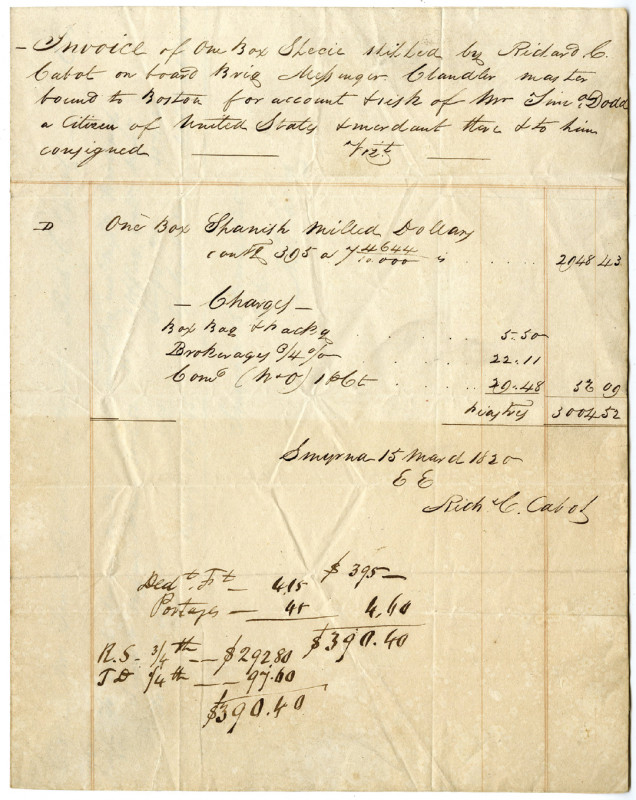 Invoice of One Box Specie shipped by Richard C.
Cabot on board Brig Messenger Chandler master
bound to Boston for account & risk of Mr Timo. Dodd
a Citizen of United States & merchant there & to him
consigned Vizt
D One Box Spanish milled Dollars
contg 395 a 7 4644/10.000 is .... 2948 43
— Charges —
Box Bag & packg .... 5.50
Brokerages 3/4 % .... 22.11
Como (No) 1 p Ct .... 29.48 57 09
piastres 3005 52
Smyrna 15 March 1820
E E
Richd C. Cabot
$395 —
Dedt. Ft — 4.15
Postages — 45 4.60
$390.40
R.S. 3/4 th — $292.80
T D 1/4 th — 97.60
$390.40